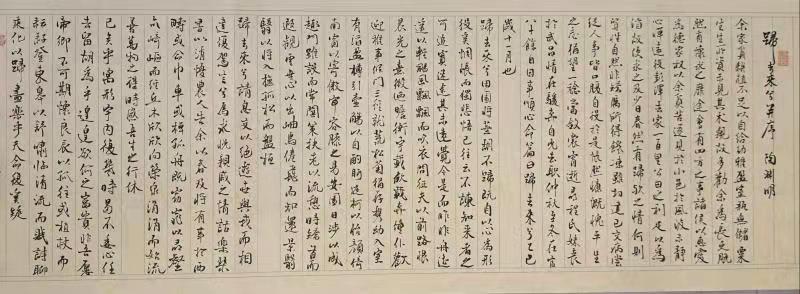 歸去來兮并序 陶淵明
余家貧耕植不足以自給幼稚盈室缾無儲粟
生生所資未見其術親故多勸余為長吏脫
然有懷求之靡途會有四方之事諸侯以惠愛
為德家叔以余貧苦遂見用於小邑於風波未靜
心憚遠役彭澤去家一百里公田之利足以為
酒故便求之及少日眷然有歸歟之情何則
質性自然非矯厲所得飢凍雖切違己交病嘗
從人事皆口腹自役於是悵然慷慨深愧平生
之志猶望一稔當斂裳宵逝尋程氏妹喪
於武昌情在駿奔自免去職仲秋至冬在官
八十餘日因事順心命篇曰歸去來兮乙巳
歲十一月也
歸去來兮田園將蕪胡不歸既自以心為形
役奚惆悵而獨悲悟已往之不諫知來者之
可追實迷途其未遠覺今是而昨非舟遙
遙以輕颺風飄飄而吹衣問征夫以前路恨
晨光之熹微乃瞻衡宇載欣載奔僮僕歡
迎稚子候門三徑就荒松菊猶存攜幼入室
有酒盈樽引壺觴以自酌眄庭柯以怡顏倚
南窗以寄傲審容膝之易安園日涉以成
趣門雖設而常關策扶老以流憩時矯首而
遐觀雲無心以出岫鳥倦飛而知還景翳
翳以將入撫孤松而盤桓
歸去來兮請息交以絕遊世與我而相
違復駕言兮焉求悅親戚之情話樂琴
書以消憂農人告余以春及將有事於西
疇或命巾車或棹孤舟既窈窕以尋壑
亦崎嶇而經丘木欣欣向榮泉涓涓而始流
善萬物之得時感吾生之行休
已矣乎寓形宇內復幾時曷不委心任
去留胡為乎遑遑欲何之富貴非吾願
帝鄉不可期懷良辰以孤往或植杖而
耘耔登東皋以舒嘯臨清流而賦詩聊
乘化以歸盡樂乎天命復奚疑